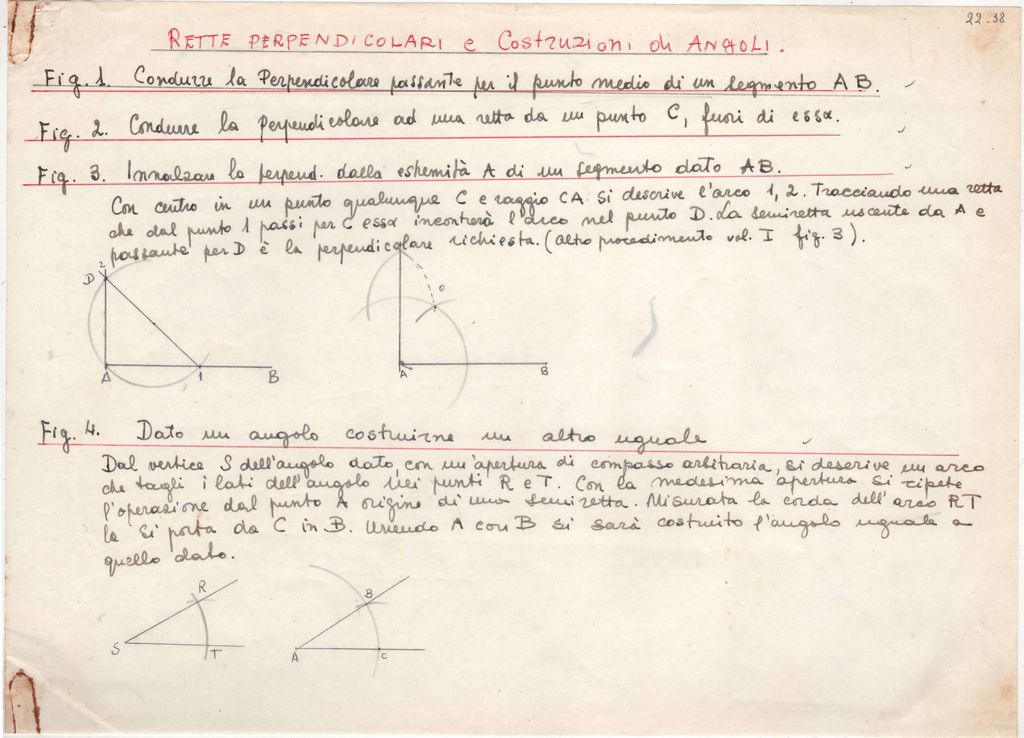 22-38
RETTE PERPENDICOLARI e Costruzioni di ANGOLI.
Fig. 1. Condurre la Perpendicolare passante per il punto medio di un segmento AB.
Fig. 2. Condurre la Perpendicolare ad una retta da un punto C, fuori di essa.
Fig. 3. Innalzare la perpend. dalla estremità A di un segmento dato AB.
Con centro in un punto qualunque C e raggio CA si descrive l'arco 1, 2. Tracciando una retta
che dal punto 1 passi per C essa incontrerà l'arco nel punto D. La semiretta uscente da A e
passante per D è la perpendicolare richiesta. (altro procedimento vol. I fig. 3).
D 2
A 1 B
A B
Fig. 4. Dato un angolo costruirne un altro uguale
Dal vertice S dell'angolo dato, con un'apertura di compasso arbitraria, si descrive un arco
che tagli i lati dell'angolo nei punti R e T. Con la medesima apertura si ripete
l'operazione dal punto A origine di una semiretta. Misurata la corda dell'arco RT
la si porta da C in B. Unendo A con B si sarà costruito l'angolo uguale a
quello dato.
R
S T
B
A C